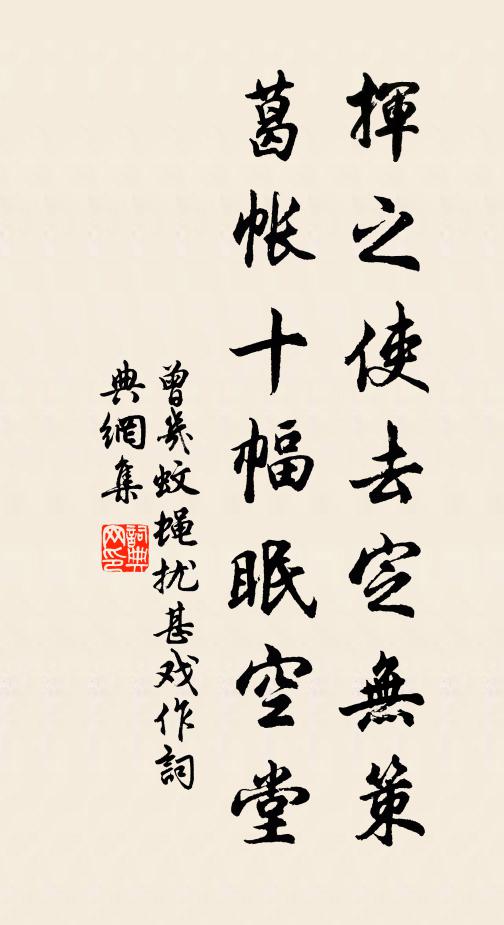 揮之使去定無策
葛帳十幅眠空堂
曾幾蚊蝇扰甚戏作詞
典網集
詞典網印